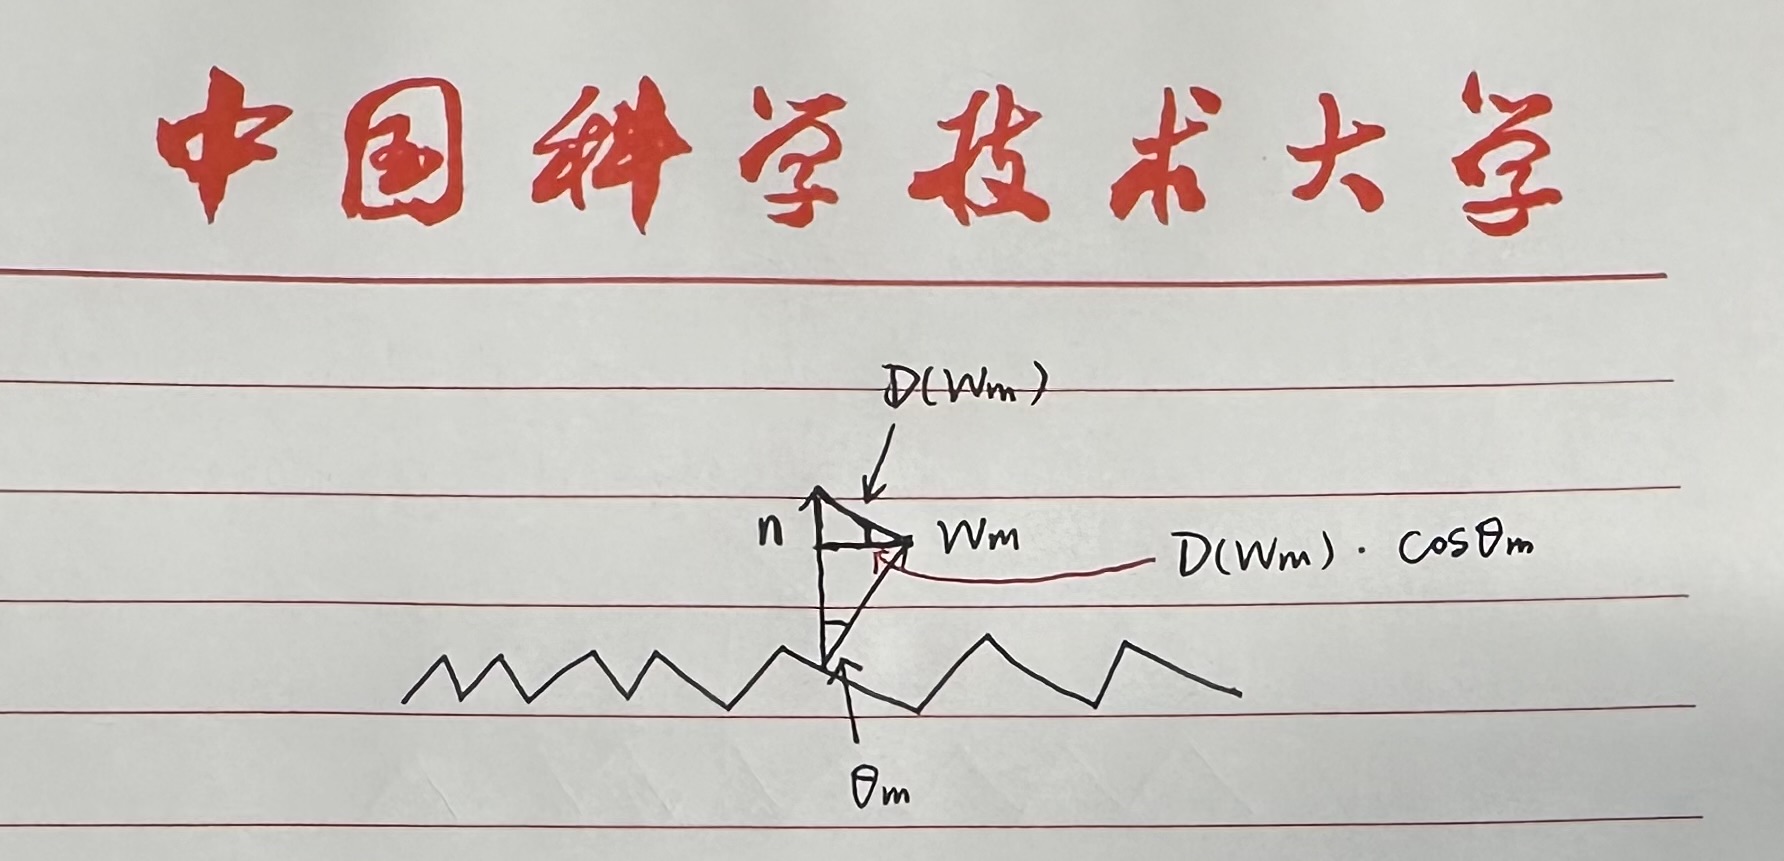 中国科学技术大学
D(Wm)
n
Wm
D(Wm) · cosθm
θm